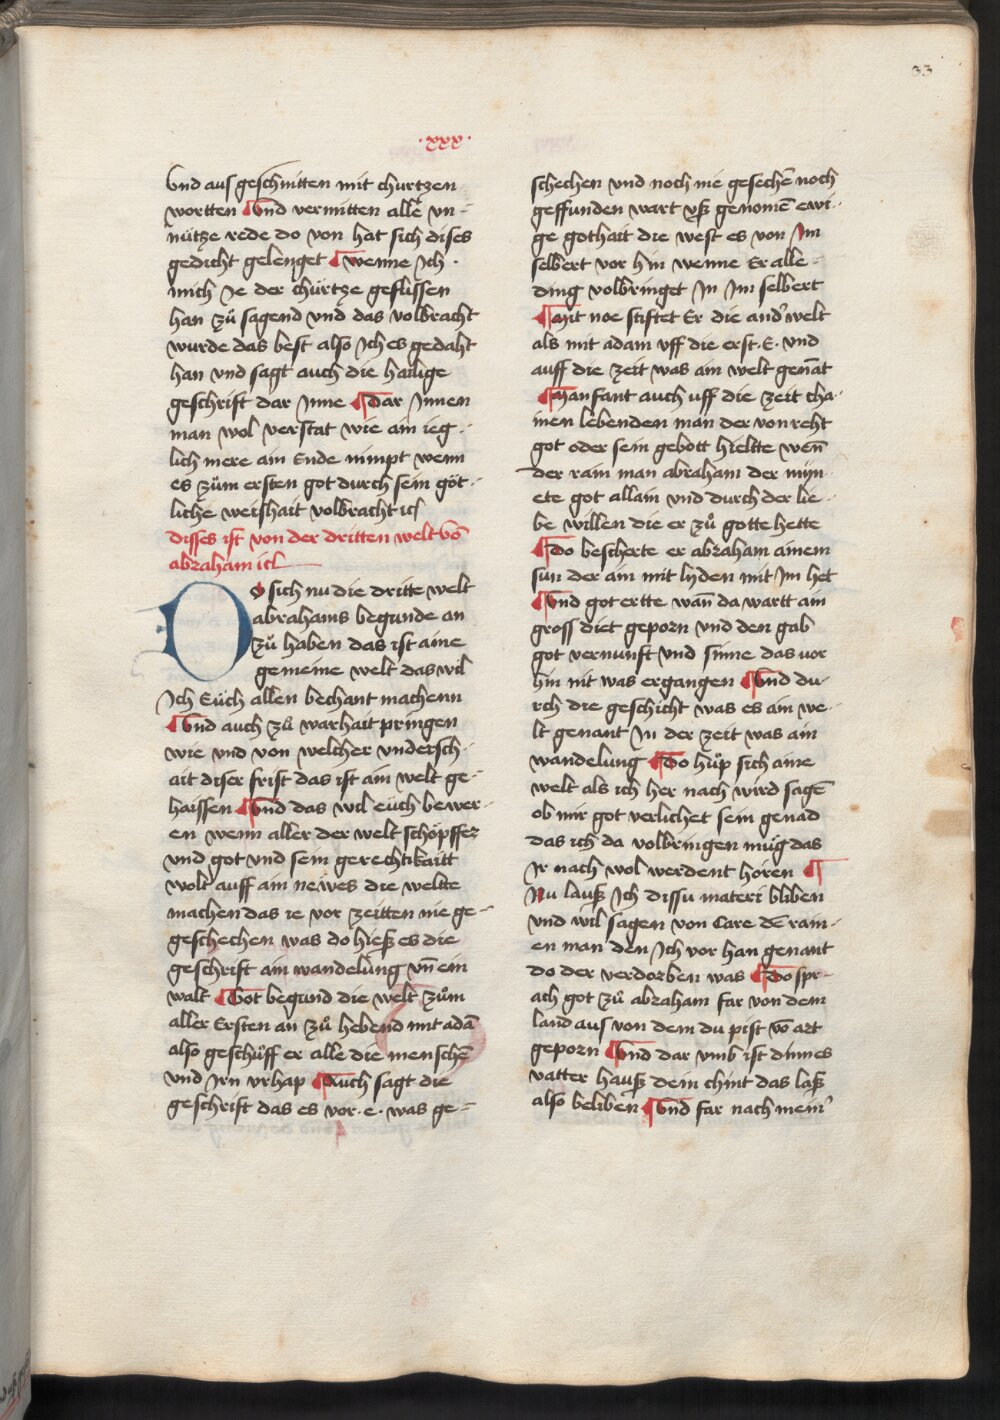 33
·xxx·
Vnd aus geschnitten mit churtzen
wortten Vnd vermitten alle vn-
nútze rede do von hat sich dises
gedicht gelenget Wenne Ich
mich Je der chúrtze geflissen
han zů sagend vnd das volbracht
wurde das best also Ich es gedaht
han vnd sagt auch die hailige
geschrift dar Jnne Dar Jnnen
man wol verstat wie ain ieg-
lich mere ain Ende nimpt wenn
es zům ersten got durch sein göt-
liche weishait volbracht icl
disses ist von der dritten welt võ
abraham icl
Do sich nu die dritte welt
abrahams begunde an
zů haben das ist aine
gemeine welt das wil
Ich Eüch allen bechant machenn
Vnd auch zů warhait pringen
wie vnd von welcher vndersch-
ait diser frist das ist ain welt ge-
haissen Vnd das wil eüch bewer-
en wenn aller der welt schöpffer
vnd got vnd sein gerechtikaitt
wolt auff ain newes die weltte
machen das ie vor zeitten nie ge-
geschechen was do hieß es die
geschrift ain wandelung vñ ein
walt Got begund die welt zům
aller Ersten an zů hebend mit adã
also geschůff er alle die menschẽ
vnd Jrn vrhap Auch sagt die
geschrift das es vor ·e· was ge-
schechen vnd noch nie gesechẽ noch
geffunden wart vß genomẽ ewi-
ge gothait die west es von Jm
selbert vor hin wenne Er alle
ding volbringet Jn Jm selbert
Mit noe stiftet Er die and' welt
als mit adam vff die erst ·E· vnd
auff die zeit was ain welt genãt
Man fant auch uff die zeit cha-
inen lebenden man der von reht
got oder sein gebott hieltte wẽn
der rain man abraham der mýn-
ete got allain vnd durch der lie-
be willen die er zů gotte hette
Do bescherte er abraham ainem
sun der ain mit lyden mit Jm het
Vnd got ertte wañ da wartt ain
gross diet geporn vnd den gab
got vernunft vnd sinne das vor
hin nit was ergangen Vnd du-
rch die geschicht was es ain we-
lt genant Jn der zeit was ain
wandelung Do hůp sich aine
welt als ich her nach wird sagẽ
ob mir got verlichet sein genad
das ich da volbringen müg das
Jr nach wol werdent hören
Nu lauß Ich dissu materi bliben
vnd wil sagen von Care dẽ rain-
en man den Ich vor han genant
do der verdorben was Do spr-
ach got zů abraham far von dem
land aus von dem du pist võ art
geporn Vnd dar vmb ist dinnes
vatter hauß dein chint das laß
also beliben Vnd far nach mein'